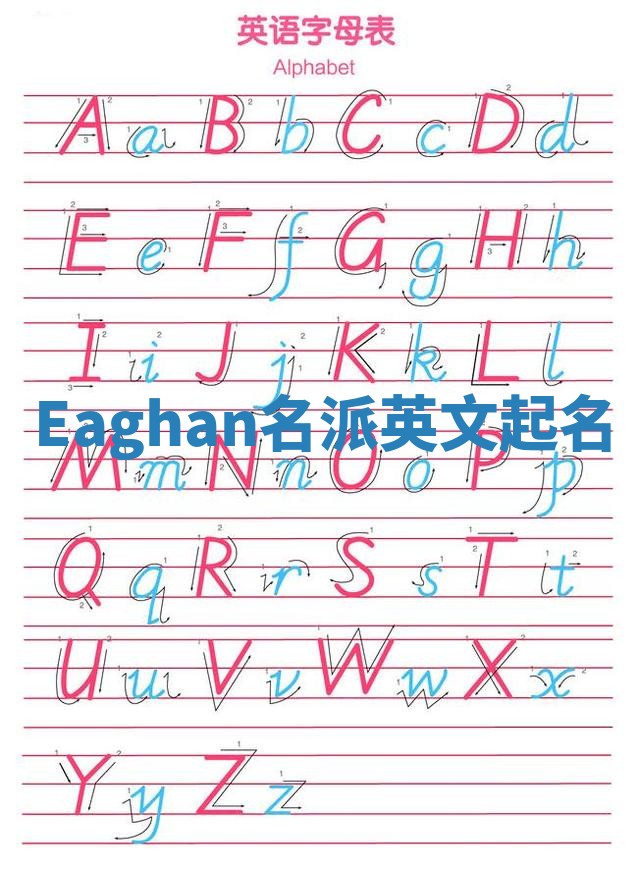 英语字母表
Alphabet
A a B b C c D d
E e F f G g H h
I i J j K k L l
Eaghan名派英文起名
M m N n O o P p
Q q R r S s T t
U u V v W w X x
Y y Z z